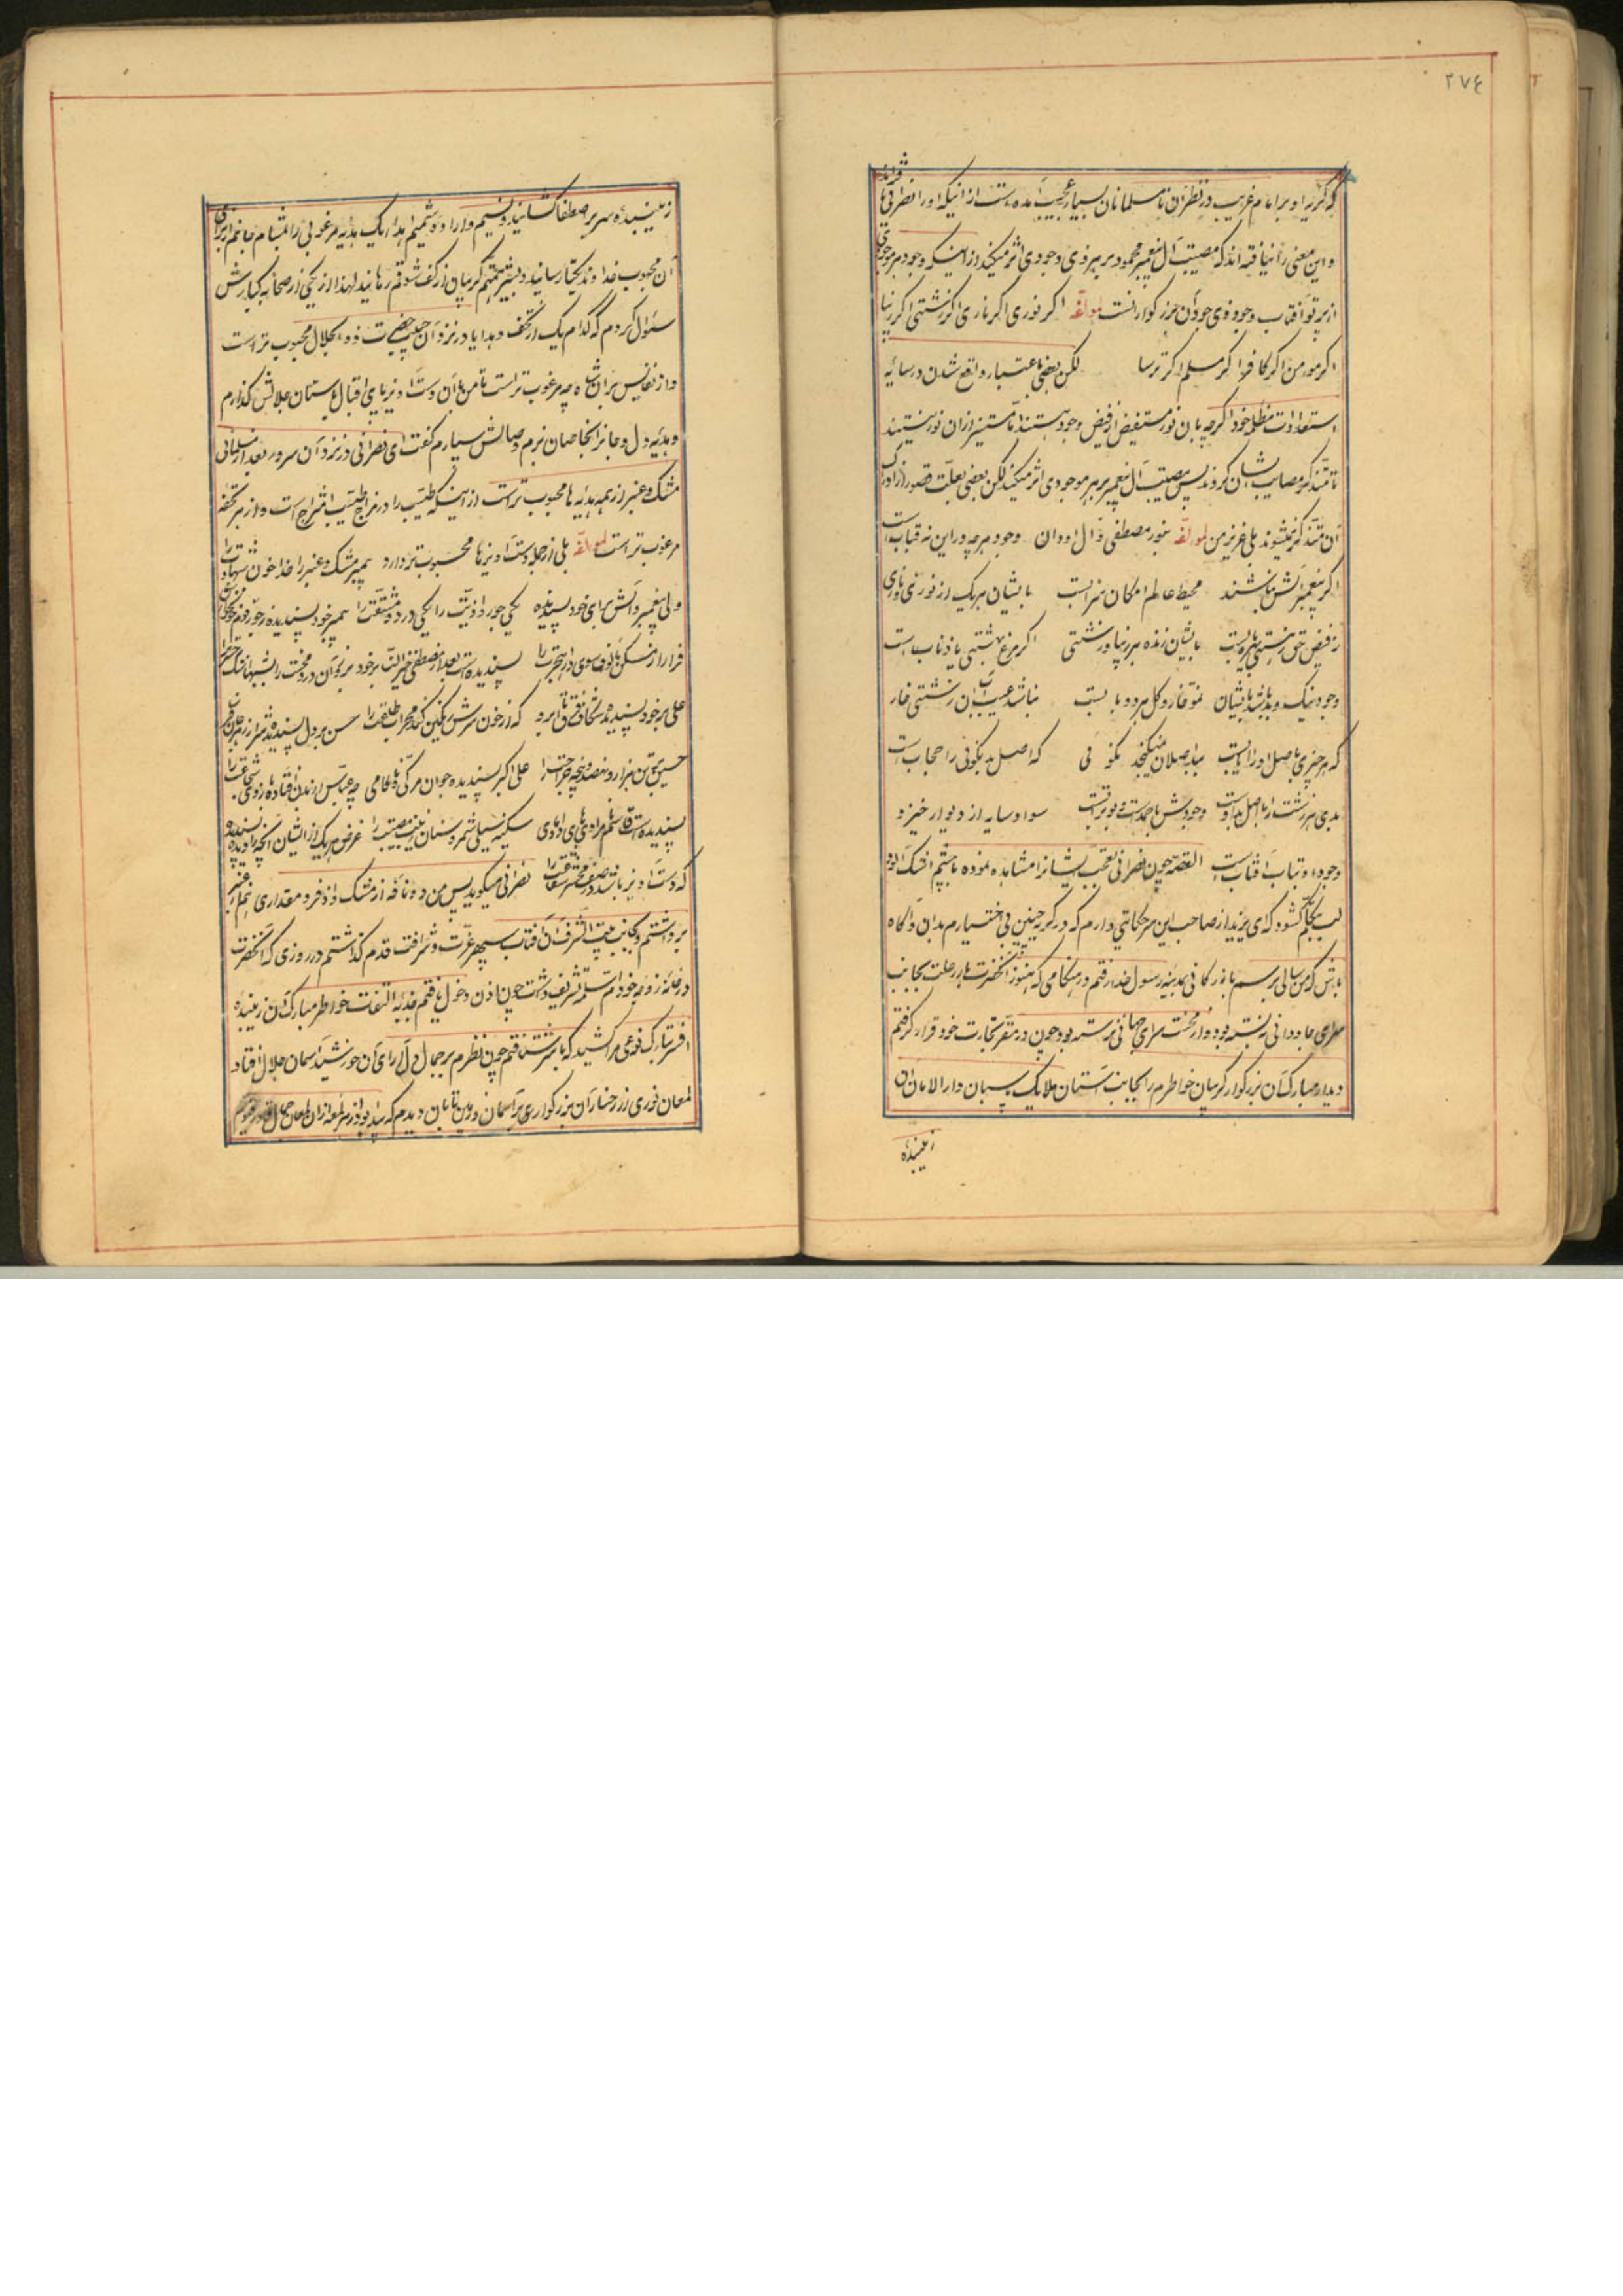 ٢٧٤
که گریه او بر امام غریب در نظر آن نامسلمانان بسیار عجیب آمده است از اینکه او را نصرانی
و این معنی را نیافته اند که مصیبت آل پیغمبر محمود بر هر ذی وجودی اثر میکند از اینکه وجود هر موجودی
از پرتو آفتاب وجود ذی جود آن بزرگوار است لمولفه اگر نوری اگر ناری اگر زشتی اگر زیبا
اگر مومن اگر کافر اگر مسلم اگر ترسا لکن بعضی باعتبار واقع شدن در سایه
استعدادات مظلمه خود اگرچه بآن نور مستفیض از فیض وجود هستند اما مستنیر از آن نور نیستند
تا متذکر مصایب ایشان گردند پس مصیبت آل پیغمبر بر هر موجودی اثر میکند لکن بعضی بعلت قصور از ادراک
آن متذکر نمیشوند بلی عزیز من لمولفه بنور مصطفی و آل او دان وجود هر چه در این نه قباب است
اگر پیغمبر آتش نباشند محیط عالم امکان سراب است بایشان هر یک از نوری و ناری
ز فیض حق زهستی بهره یاب است بایشان زنده هر زیبا و زشتی اگر مرغ بهشتی یا ذباب است
وجود نیک و بد باشد بایشان نمو خار و گل هر دو بآب است نباشد عیب آب آن زشتی خار
که هر چیزی باصل او را ایاب است بد اصلان نمیگنجد نکوئی که اصل بد نکوئی را حجاب است
بدی هر زشت را از اصل بد اوست وجودش با جمد است و بو تراب است سواد سایه از دیوار خیزد
وجود او بتاب آفتاب است القصه چون نصرانی تعجب ایشانرا مشاهده نموده با چشم اشک آلود
لب بتکلم گشود که ای یزید از صاحب این سر حکایتی دارم که در گریه چنین بی اختیارم بدان و آگاه
باش که من سالی برسم بازرگانی بمدینه رسول خدا رفتم در هنگامی که هنوز آنحضرت بار رحلت بجانب
سرای جاودانی نبسته بود و از محنت سرای جهانی نرسته بود چون در مقر تجارت خود قرار گرفتم
و دیدار مبارک آن بزرگوار گریبان خاطرم را بجانب آستان ملایک پاسبان دارالامان آن
زیبنده
زیبنده سریر اصطفا کشانید و نسیم دل آرا و شمیم اهداء یک هدیه مرغوبی را بمشام جانم از برای
آن محبوب خداوند یکتا رسانید و بیشتر همتم گریبان از کف شوقم رهانید لهذا از یکی از صحابه کبارش
سئوال کردم که کدام یک از تحف و هدایا در نزد آن حبیب حضرت ذوالجلال محبوب تر است
و از نفایس بر آن شاه چه مرغوب تر است تا من بآن دست آویز پای اقبال باستان جلالش گذارم
و هدیه دل و جانرا بخاصان بزم وصالش سپارم گفت ای نصرانی در نزد آن سرور بعد از مسلمانی
مشک و عنبر از همه هدیه ها محبوب تر است از اینکه طیب را در مزاج طیب امتزاج است و از هر تحفه
مرغوب تر است لمولفه بلی از جمله دست آویزها محبوب تر دارد پیمبر مشک و عنبر را خدا خون شهادت را
ولی پیغمبر و آلش برای خود پسندیده یکی جور و اذیت را یکی درد و مشقت را پیمبر خود پسندیده ز جور قوم
فرار از مسکن مألوف سوی دار هجرت را پسندیده است بعد از مصطفی خیرالنسا بر خود
علی بر خود پسندیده شکاف فرق تا ابرو که از خون سرش رنگین کند محراب طاعت را حسن بر دل پسندیده
حسین بر تن هزار و نهصد و پنجه جراحت را علی اکبر پسندیده جوان مرگی و ناکامی چه عباس
پسندیده است قاسم نامرادی های دامادی سکینه سیلی شمر و سنان زینب مصیبت را غرض هر یک از ایشان آنچه را
که دست آویز باشد در صف محشر شفاعت را نصرانی میگوید پس من دو نافه از مشک و اذفر و مقداری هم از عنبر
برداشتم و بجانب بیت الشرف آن آفتاب سپهر عزت و شرافت قدم گذاشتم در روزی که آنحضرت
در خانه زوجه خود ام سلمه تشریف داشت چون اذن دخول یافتم جذبه التفات خواطر مبارک آن زیبنده
افسر تبارک نوعی مرا کشید که با سر شتافتم چون نظرم بر جمال دل آرای آن خورشید آسمان جلال افتاد
لمعان نوری از رخسار آن بزرگواری بر آسمان و زمین تابان دیدم که